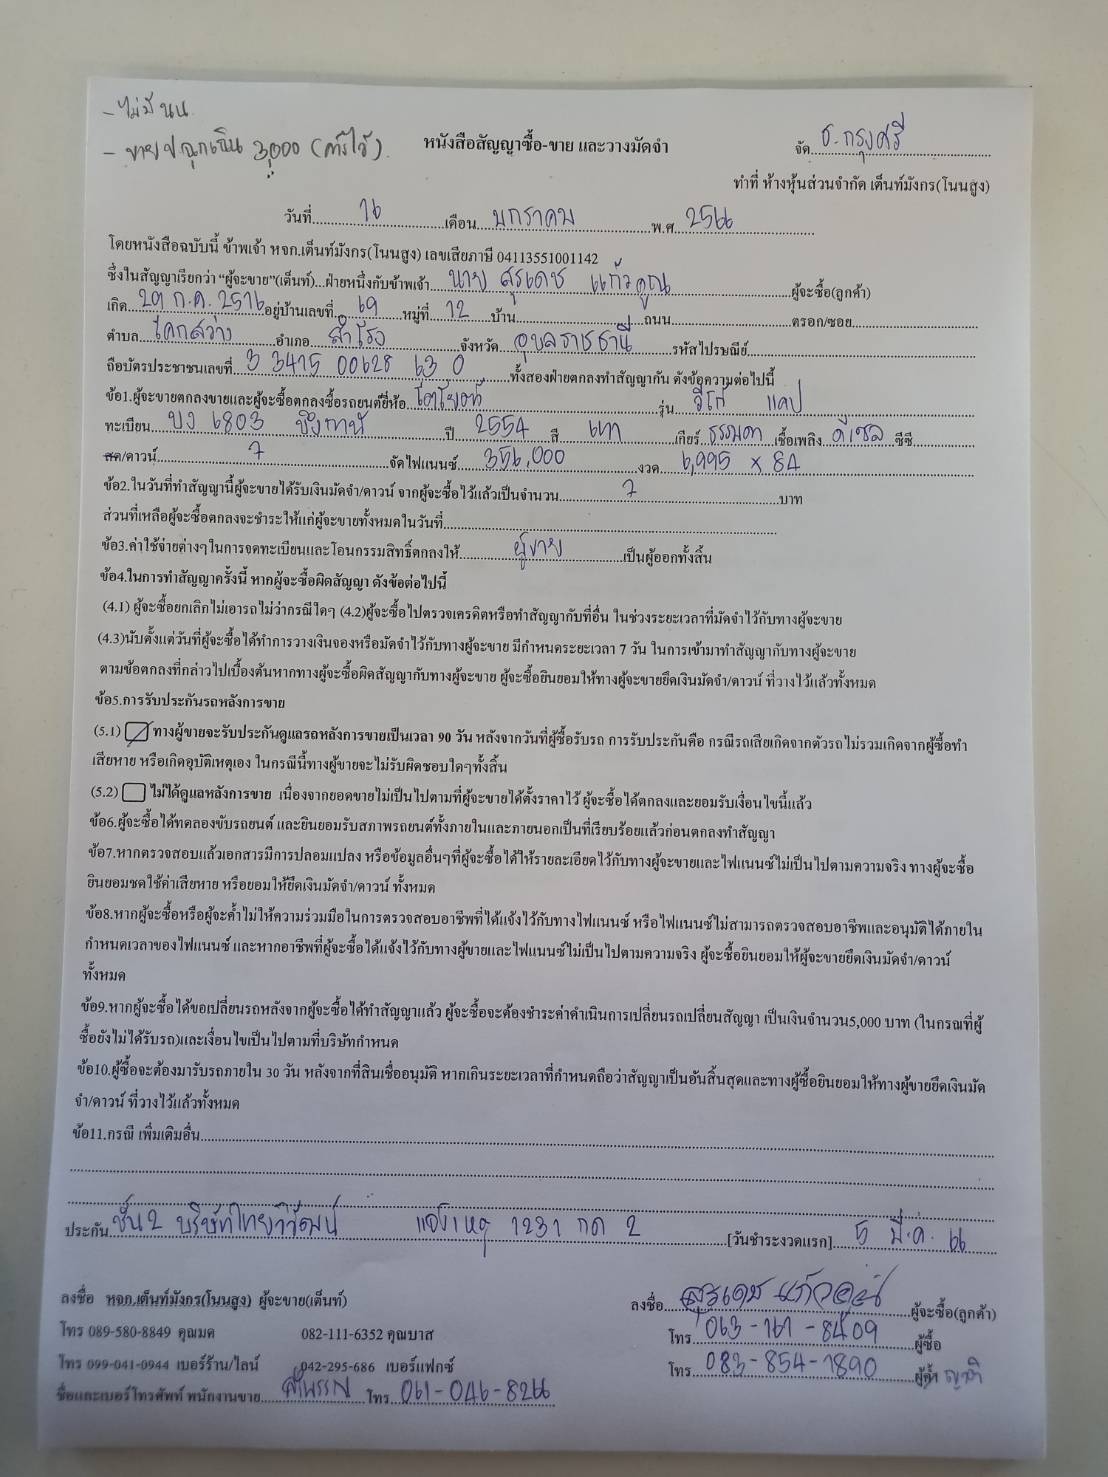 - ไม่มี นน
- ขาย ป ฉุกเฉิน 3,000
หนังสือสัญญาซื้อ-ขาย และวางมัดจำ
จัด ธ.กรุงศรี
ทำที่ ห้างหุ้นส่วนจำกัด เต็นท์มังกร(โนนสูง)
วันที่ 16 เดือน มกราคม พ.ศ 2566
โดยหนังสือฉบับนี้ ข้าพเจ้า หจก.เต็นท์มังกร(โนนสูง) เลขเสียภาษี 04113551001142
ซึ่งในสัญญาเรียกว่า "ผู้จะขาย"(เต็นท์)...ฝ่ายหนึ่งกับข้าพเจ้า นาย สุรเดช แก้วคูณ ผู้จะซื้อ(ลูกค้า)
เกิด 29 ก.ค. 2516 อยู่บ้านเลขที่ 69 หมู่ที่ 12 บ้าน ถนน ตรอก/ซอย
ตำบล โคกสว่าง อำเภอ สำโรง จังหวัด อุบลราชธานี รหัสไปรษณีย์
ถือบัตรประชาชนเลขที่ 3 3415 00628 63 0 ทั้งสองฝ่ายตกลงทำสัญญากัน ดังข้อความต่อไปนี้
ข้อ1.ผู้จะขายตกลงขายและผู้จะซื้อตกลงซื้อรถยนต์ยี่ห้อ โตโยต้า รุ่น วีโก้ แคป
ทะเบียน บง 6803 ปี 2554 สี เทา เกียร์ ธรรมดา เชื้อเพลิง ดีเซล ซีซี
สด/ดาวน์ 7 จัดไฟแนนซ์ 356,000 งวด 6,995 x 84
ข้อ2.ในวันที่ทำสัญญานี้ผู้จะขายได้รับเงินมัดจำ/ดาวน์ จากผู้จะซื้อไว้แล้วเป็นจำนวน 7 บาท
ส่วนที่เหลือผู้จะซื้อตกลงจะชำระให้แก่ผู้จะขายทั้งหมดในวันที่
ข้อ3.ค่าใช้จ่ายต่างๆในการจดทะเบียนและโอนกรรมสิทธิ์ตกลงให้ ผู้ขาย เป็นผู้ออกทั้งสิ้น
ข้อ4.ในการทำสัญญาครั้งนี้ หากผู้จะซื้อผิดสัญญา ดังข้อต่อไปนี้
(4.1) ผู้จะซื้อยกเลิกไม่เอารถไม่ว่ากรณีใดๆ (4.2)ผู้จะซื้อไปตรวจเครดิตหรือทำสัญญากับที่อื่น ในช่วงระยะเวลาที่มัดจำไว้กับทางผู้จะขาย
(4.3)นับตั้งแต่วันที่ผู้จะซื้อได้ทำการวางเงินจองหรือมัดจำไว้กับทางผู้จะขาย มีกำหนดระยะเวลา 7 วัน ในการเข้ามาทำสัญญากับทางผู้จะขาย
ตามข้อตกลงที่กล่าวไปเบื้องต้นหากทางผู้จะซื้อผิดสัญญากับทางผู้จะขาย ผู้จะซื้อยินยอมให้ทางผู้จะขายยึดเงินมัดจำ/ดาวน์ ที่วางไว้แล้วทั้งหมด
ข้อ5.การรับประกันรถหลังการขาย
(5.1) ทางผู้ขายจะรับประกันดูแลรถหลังการขายเป็นเวลา 90 วัน หลังจากวันที่ผู้ซื้อรับรถ การรับประกันคือ กรณีรถเสียเกิดจากตัวรถไม่รวมเกิดจากผู้ซื้อทำ
เสียหาย หรือเกิดอุบัติเหตุเอง ในกรณีนี้ทางผู้ขายจะไม่รับผิดชอบใดๆทั้งสิ้น
(5.2) ไม่ได้ดูแลหลังการขาย เนื่องจากยอดขายไม่เป็นไปตามที่ผู้จะขายได้ตั้งราคาไว้ ผู้จะซื้อได้ตกลงและยอมรับเงื่อนไขนี้แล้ว
ข้อ6.ผู้จะซื้อได้ทดลองขับรถยนต์ และยินยอมรับสภาพรถยนต์ทั้งภายในและภายนอกเป็นที่เรียบร้อยแล้วก่อนตกลงทำสัญญา
ข้อ7.หากตรวจสอบแล้วเอกสารมีการปลอมแปลง หรือข้อมูลอื่นๆที่ผู้จะซื้อได้ให้รายละเอียดไว้กับทางผู้จะขายและไฟแนนซ์ไม่เป็นไปตามความจริง ทางผู้จะซื้อ
ยินยอมชดใช้ค่าเสียหาย หรือยอมให้ยึดเงินมัดจำ/ดาวน์ ทั้งหมด
ข้อ8.หากผู้จะซื้อหรือผู้จะค้ำไม่ให้ความร่วมมือในการตรวจสอบอาชีพที่ได้แจ้งไว้กับทางไฟแนนซ์ หรือไฟแนนซ์ไม่สามารถตรวจสอบอาชีพและอนุมัติได้ภายใน
กำหนดเวลาของไฟแนนซ์ และหากอาชีพที่ผู้จะซื้อได้แจ้งไว้กับทางผู้ขายและไฟแนนซ์ไม่เป็นไปตามความจริง ผู้จะซื้อยินยอมให้ผู้จะขายยึดเงินมัดจำ/ดาวน์
ทั้งหมด
ข้อ9.หากผู้จะซื้อได้ขอเปลี่ยนรถหลังจากผู้จะซื้อได้ทำสัญญาแล้ว ผู้จะซื้อจะต้องชำระค่าดำเนินการเปลี่ยนรถเปลี่ยนสัญญา เป็นเงินจำนวน5,000 บาท (ในกรณที่ผู้
ซื้อยังไม่ได้รับรถ)และเงื่อนไขเป็นไปตามที่บริษัทกำหนด
ข้อ10.ผู้ซื้อจะต้องมารับรถภายใน 30 วัน หลังจากที่สินเชื่ออนุมัติ หากเกินระยะเวลาที่กำหนดถือว่าสัญญาเป็นอันสิ้นสุดและทางผู้ซื้อยินยอมให้ทางผู้ขายยึดเงินมัด
จำ/ดาวน์ ที่วางไว้แล้วทั้งหมด
ข้อ11.กรณี เพิ่มเติมอื่น
ประกัน ชั้น2 บริษัทไทยวิวัฒน์ แจ้งเหตุ 1231 กด 2 [วันชำระงวดแรก] 5 มี.ค. 66
ลงชื่อ หจก.เต็นท์มังกร(โนนสูง) ผู้จะขาย(เต็นท์)
ลงชื่อ สุรเดช แก้วคูณ ผู้จะซื้อ(ลูกค้า)
โทร 089-580-8849 คุณมด 082-111-6352 คุณบาส
โทร 063-161-8409 ผู้ซื้อ
โทร 099-041-0944 เบอร์ร้าน/ไลน์ 042-295-686 เบอร์แฟกซ์
โทร 083-854-7890 ผู้ค้ำ ญาติ
ชื่อและเบอร์โทรศัพท์ พนักงานขาย โทร 061-046-8266